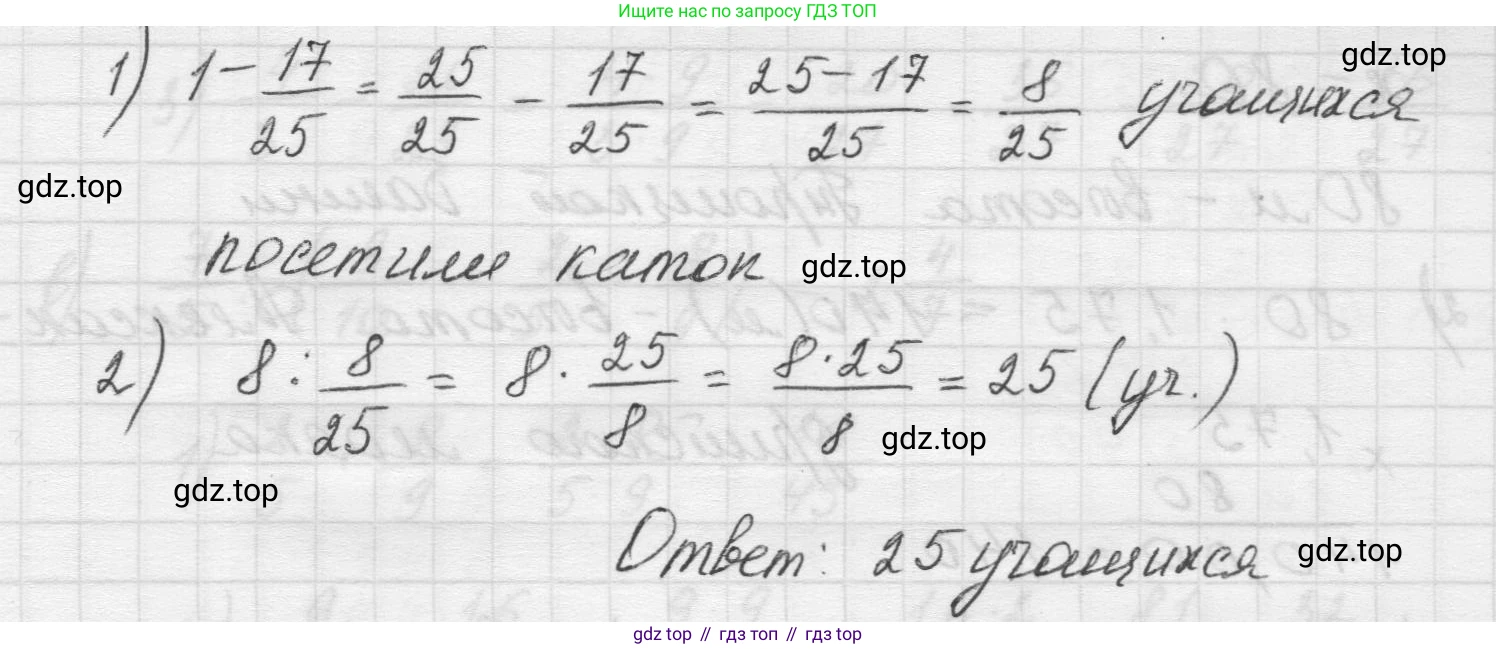 Ищите нас по запросу ГДЗ ТОП
1) 1 - 17/25 = 25/25 - 17/25 = (25-17)/25 = 8/25 учащихся
gdz.top
gdz.top
посетили каток gdz.top
2) 8 : 8/25 = 8 · 25/8 = (8·25)/8 = 25 (уч.)
gdz.top
gdz.top
Ответ: 25 учащихся gdz.top
gdz top // гдз топ // gdz top